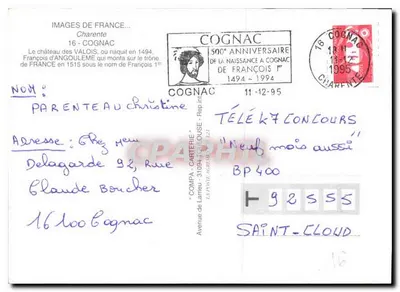 IMAGES DE FRANCE...
Charente
16 - COGNAC
Le château des VALOIS, où naquit en 1494,
François d'ANGOULEME qui monta sur le trône
de FRANCE en 1515 sous le nom de François 1er
COGNAC
500e ANNIVERSAIRE
DE LA NAISSANCE A COGNAC
DE FRANÇOIS 1er
1494 - 1994
COGNAC 11-12-95
16 COGNAC
1995
CHARENTE
NOM:
PARENTEAU Christine
Adresse: Chez Mme
Delagarde 92, Rue
Claude Boucher
16100 Cognac
"COMPA - CARTERIE"
Avenue de Larrieu - 31094 TOULOUSE - Rep. int.
TÉLÉ K7 CONCOURS
"Neuf mois aussi"
BP 400
92555
SAINT-CLOUD